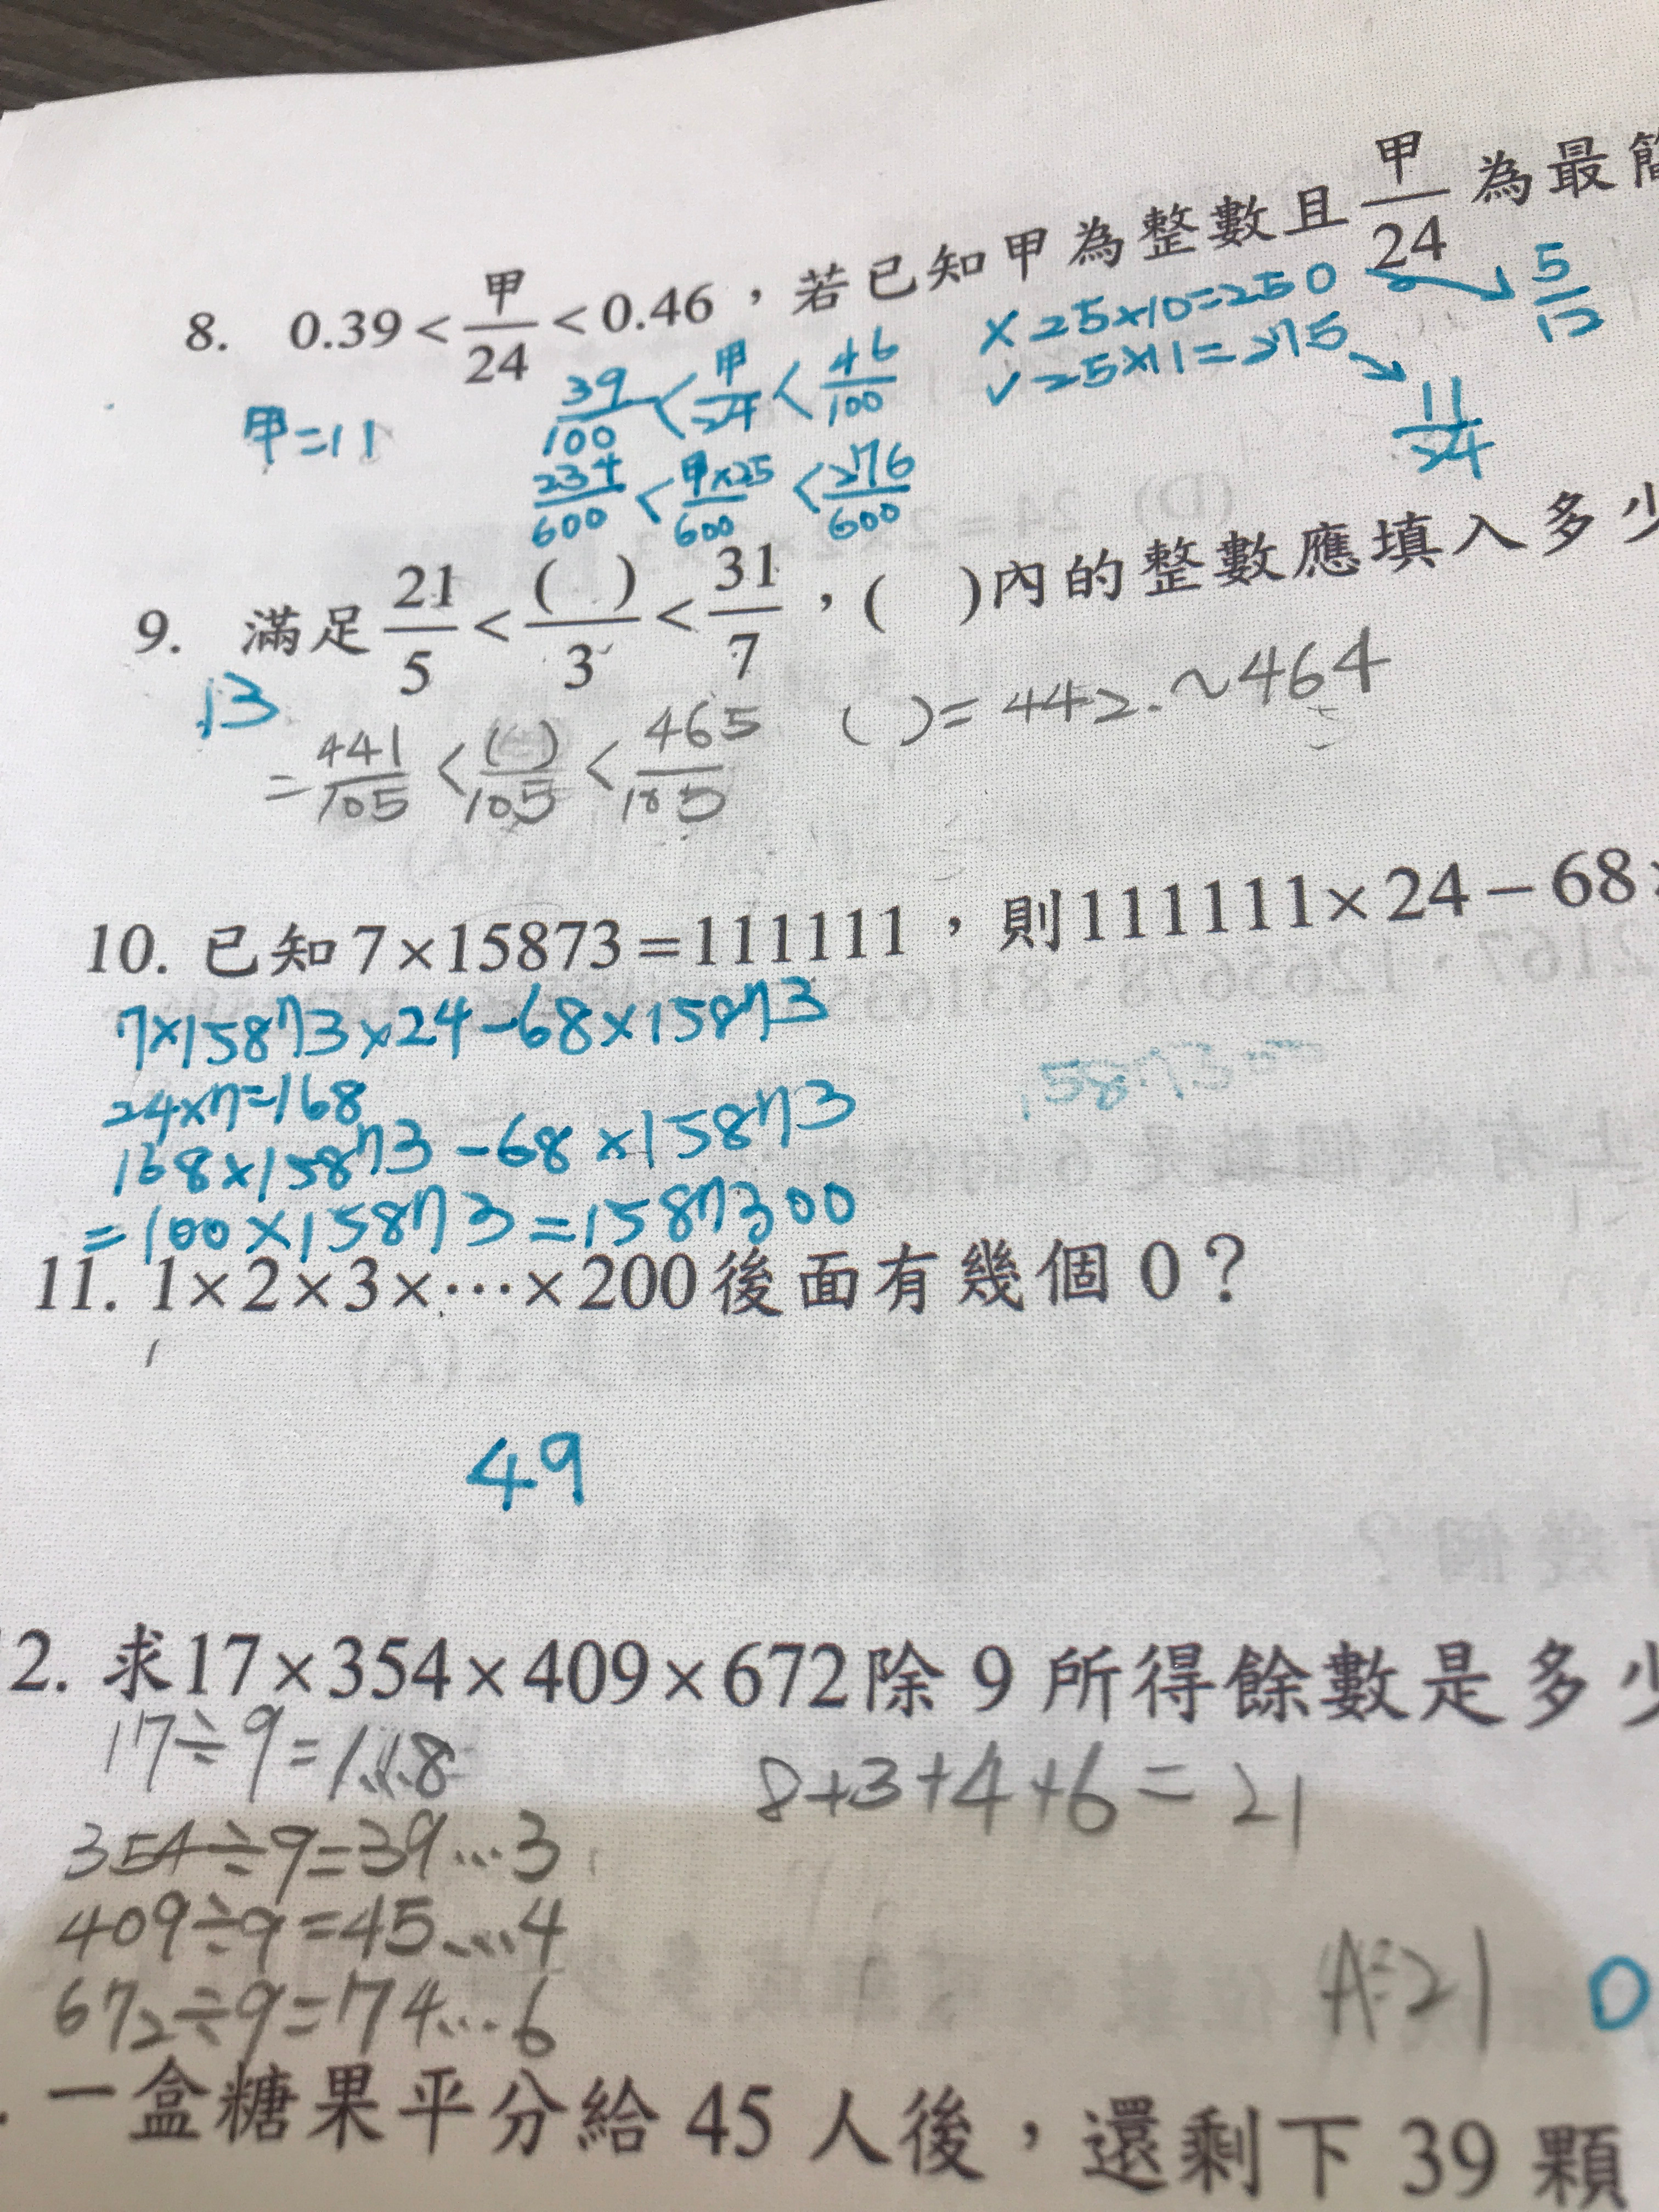 8. 0.39 < 甲/24 < 0.46，若已知甲為整數且 甲/24 為最簡
甲=11
39/100 < 甲/24 < 46/100
234/600 < 甲×25/600 < 276/600
×25×10=250 → 5/12
✓25×11=275 → 11/24
9. 滿足 21/5 < ( )/3 < 31/7，( )內的整數應填入多少
13
= 441/105 < ( )/105 < 465/105
( )=442.~464
10. 已知7×15873=111111，則111111×24−68×
7×15873×24−68×15873
24×7=168
168×15873−68×15873
=100×15873=1587300
11. 1×2×3×⋯×200後面有幾個0？
49
12. 求17×354×409×672除9所得餘數是多少
17÷9=1...8
8+3+4+6=21
354÷9=39...3
409÷9=45....4
672÷9=74...6
A=21
0
一盒糖果平分給45人後，還剩下39顆